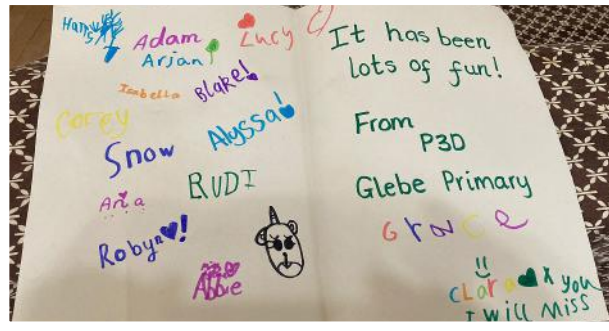 Harry
Adam
Arjan
Lucy
Isabella
Blake!
Corey
Alyssa!
Snow
RUDI
Aria
Robyn!
Abbie
It has been
lots of fun!
From
P3D
Glebe Primary
Grace
cLara x you
I will miss